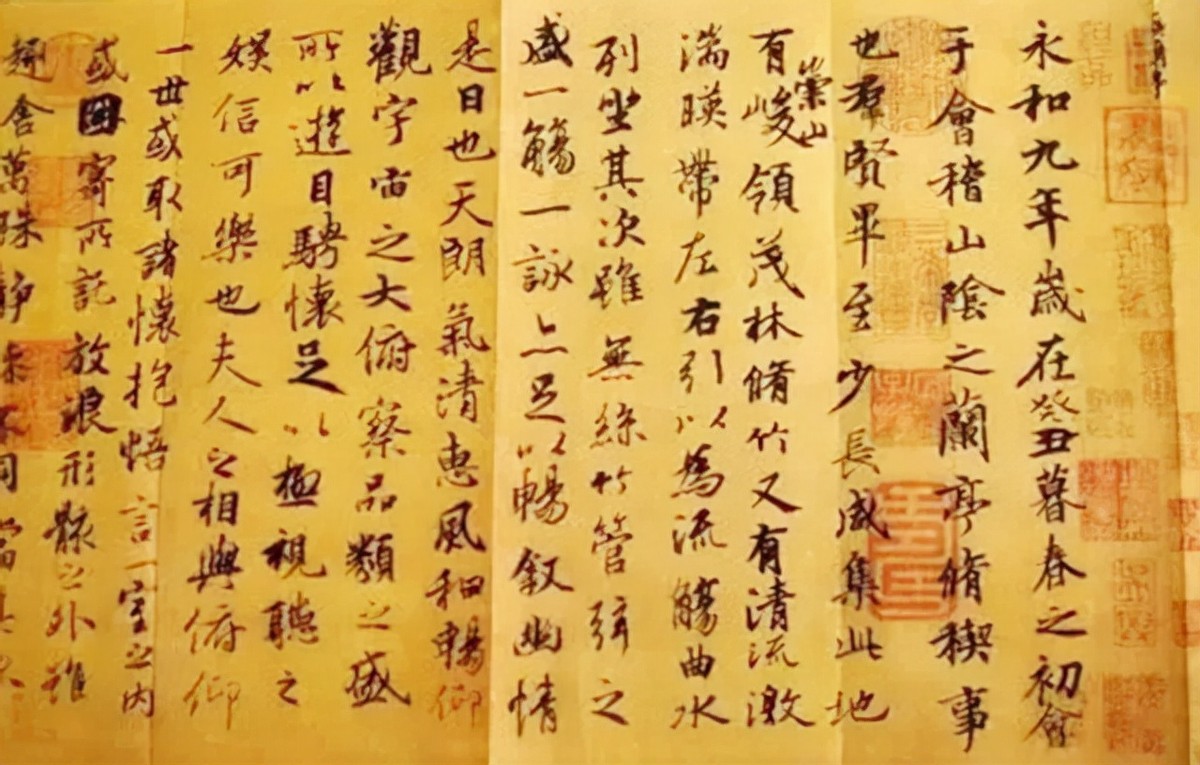 永和九年歲在癸丑暮春之初會
于會稽山陰之蘭亭脩稧事
也羣賢畢至少長咸集此地
有崇山峻領茂林脩竹又有清流激
湍暎帶左右引以為流觴曲水
列坐其次雖無絲竹管弦之
盛一觴一詠亦足以暢叙幽情
是日也天朗氣清惠風和暢仰
觀宇宙之大俯察品類之盛
所以遊目騁懷足以極視聽之
娛信可樂也夫人之相與俯仰
一世或取諸懷抱悟言一室之內
或因寄所託放浪形骸之外雖
趣舍萬殊靜